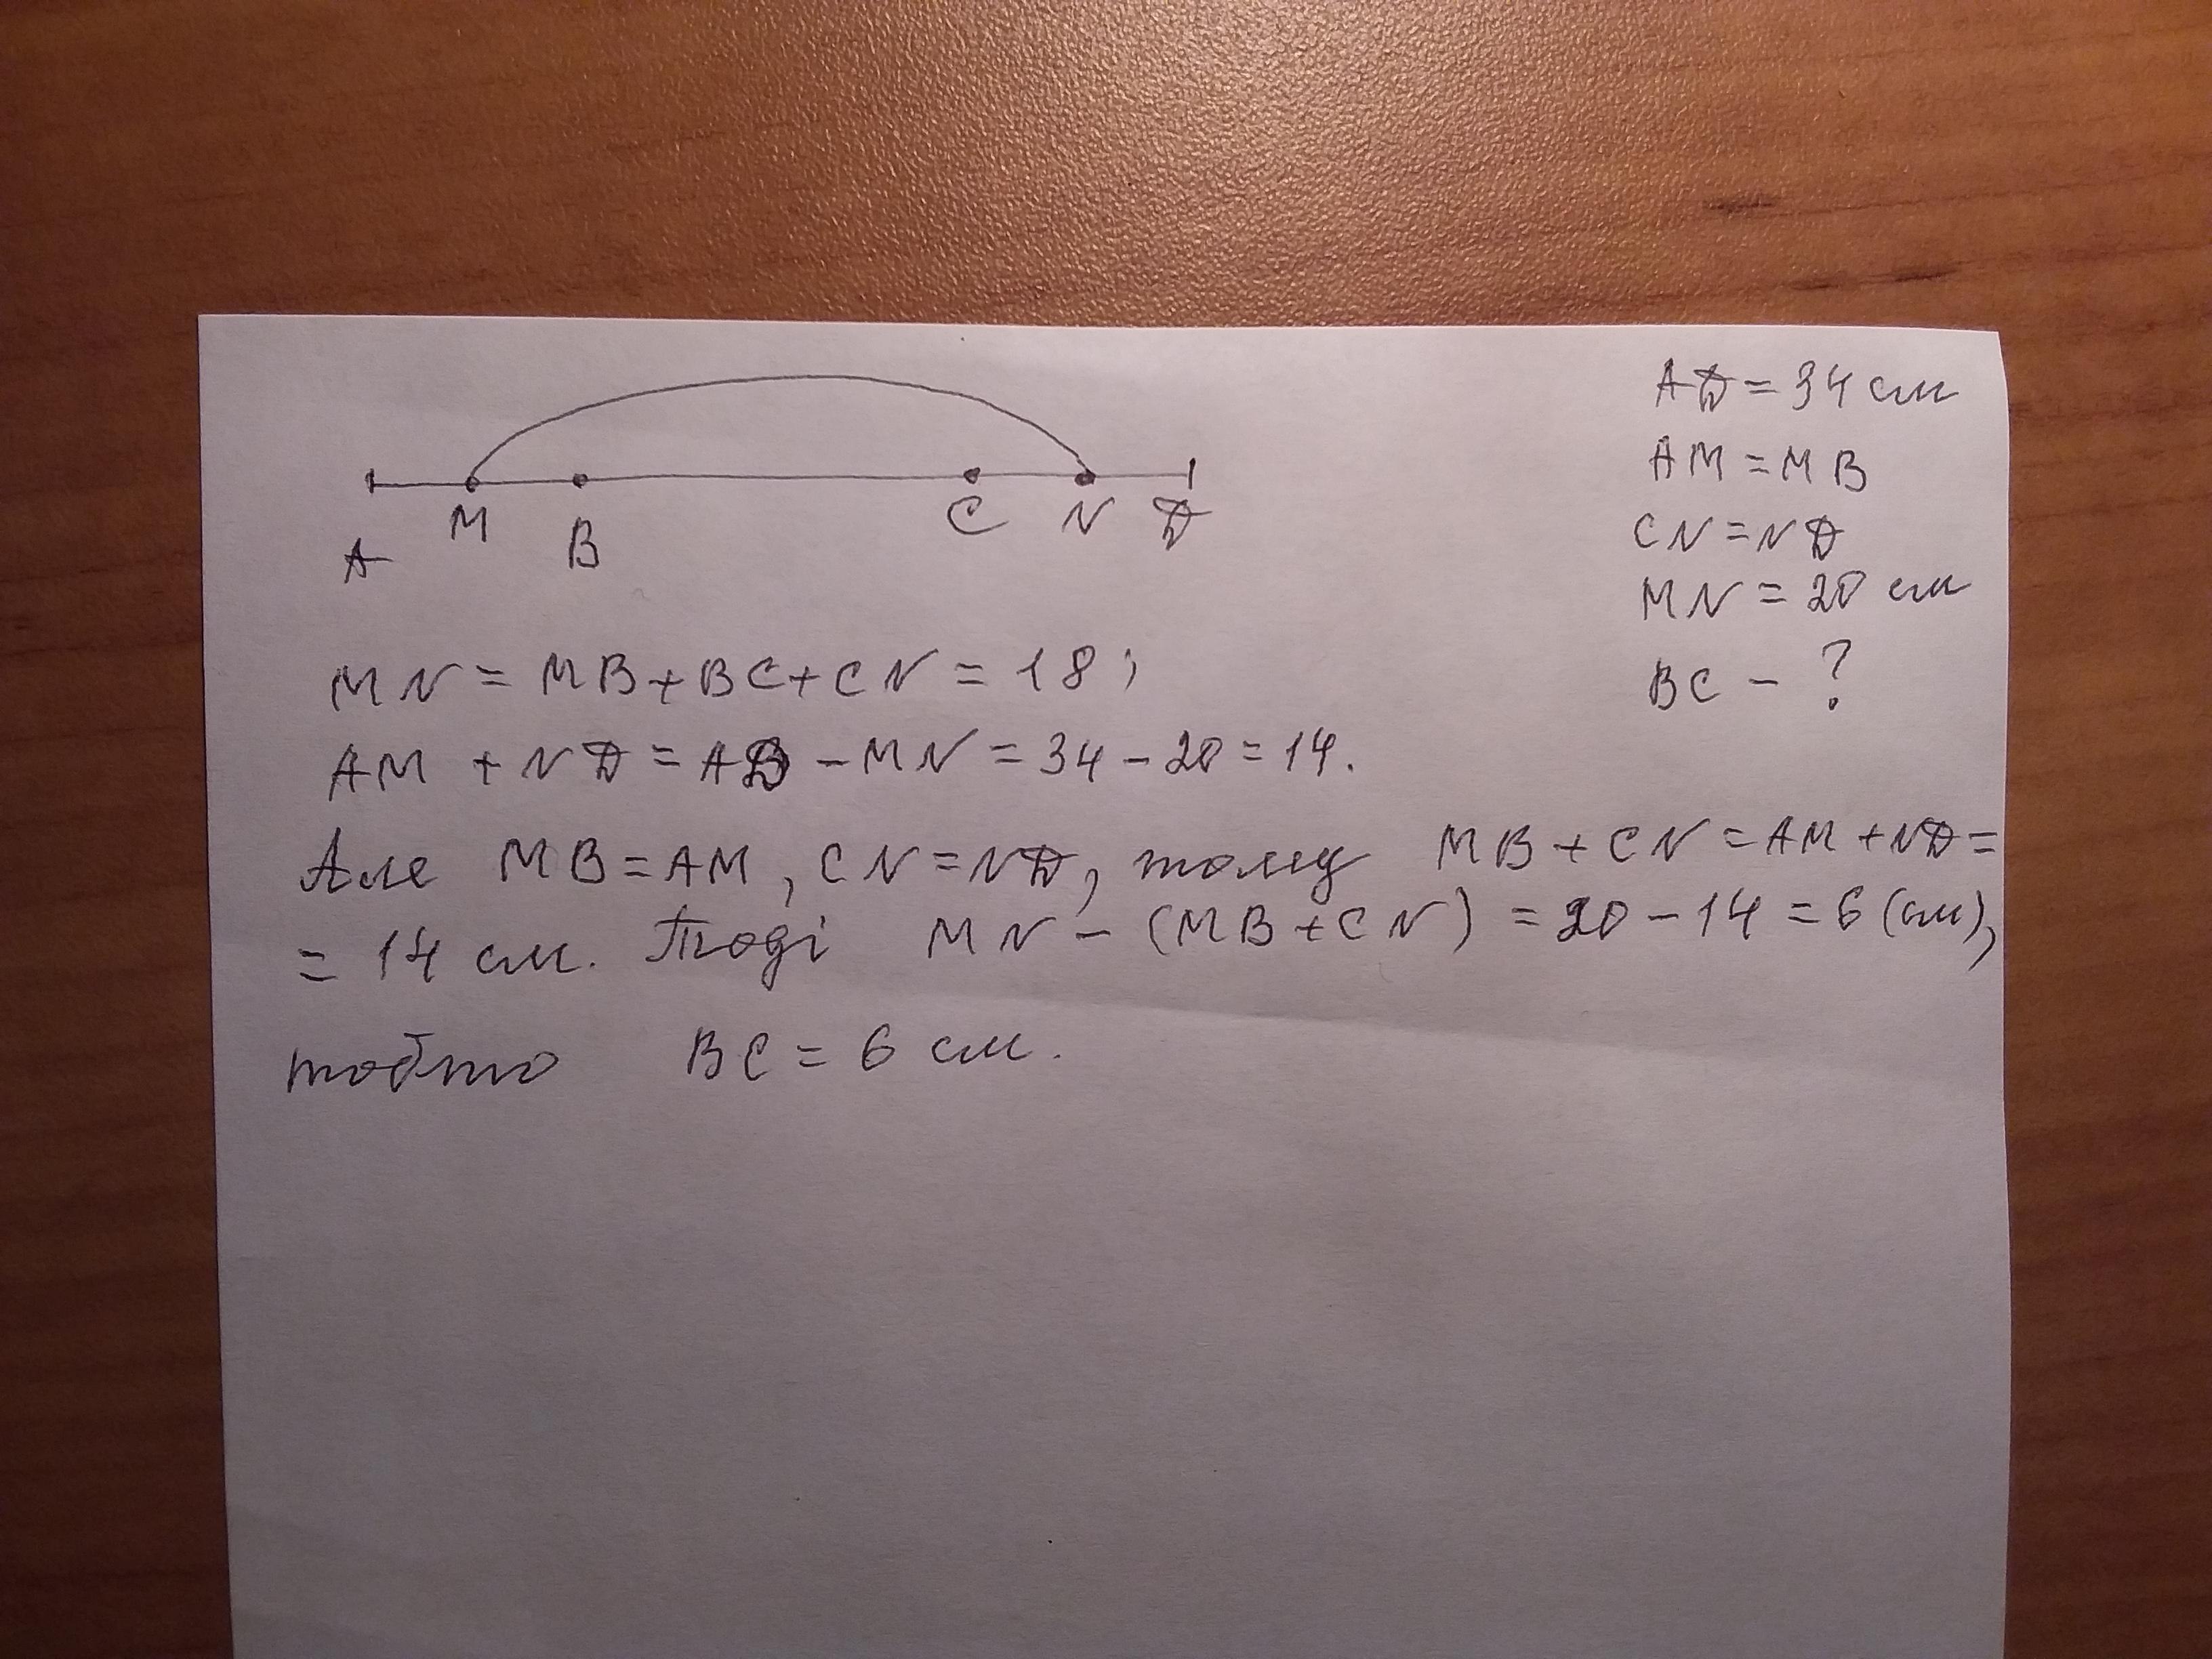 A M B C N D
AD = 34 см
AM = MB
CN = ND
MN = 20 см
BC - ?
MN = MB + BC + CN = 18;
AM + ND = AD - MN = 34 - 20 = 14.
Але MB = AM, CN = ND, тому MB + CN = AM + ND =
= 14 см. Тоді MN - (MB + CN) = 20 - 14 = 6 (см),
тобто BC = 6 см.